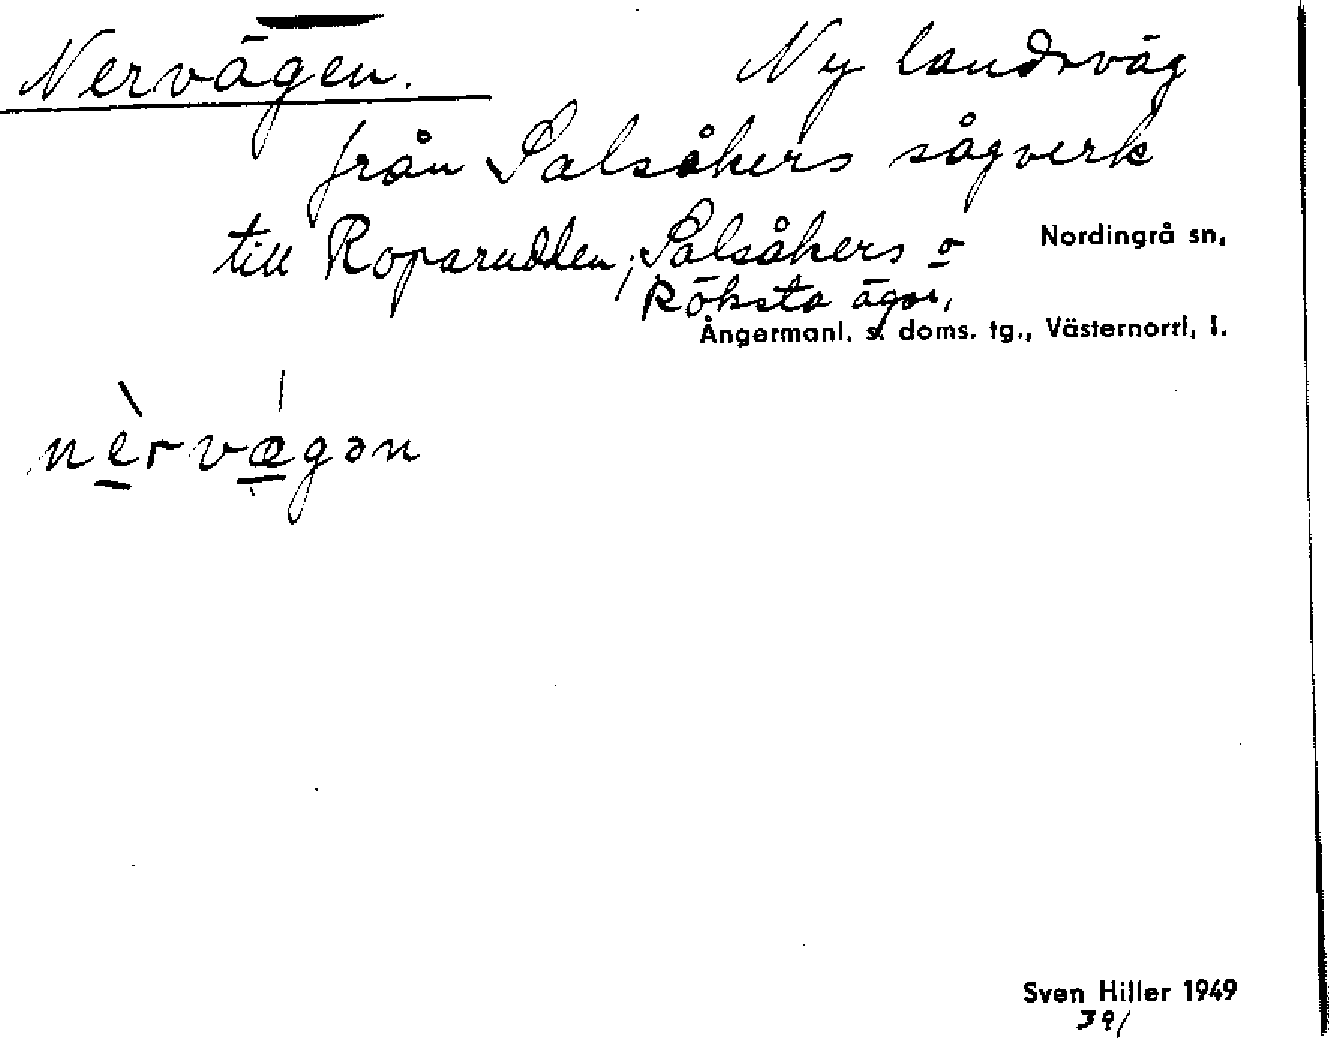 Nervägen. Ny landsväg
från Salsåkers sågverk
till Roparudden, Salsåkers o
Nordingrå sn,
Röksta ägor,
Ångermanl. s. doms. tg., Västernorrl, l.
nèrvægən
Sven Hiller 1949
391